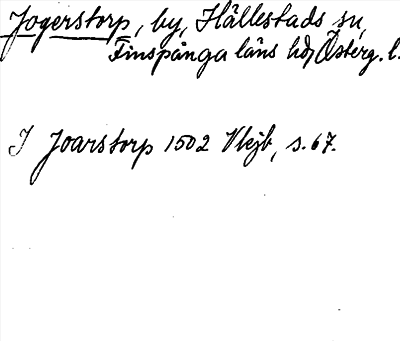 Jogerstorp, by, Hällestads sn,
Finspånga läns hd, Österg. l.
J Joarstorp 1502 Vlejb, s. 67.